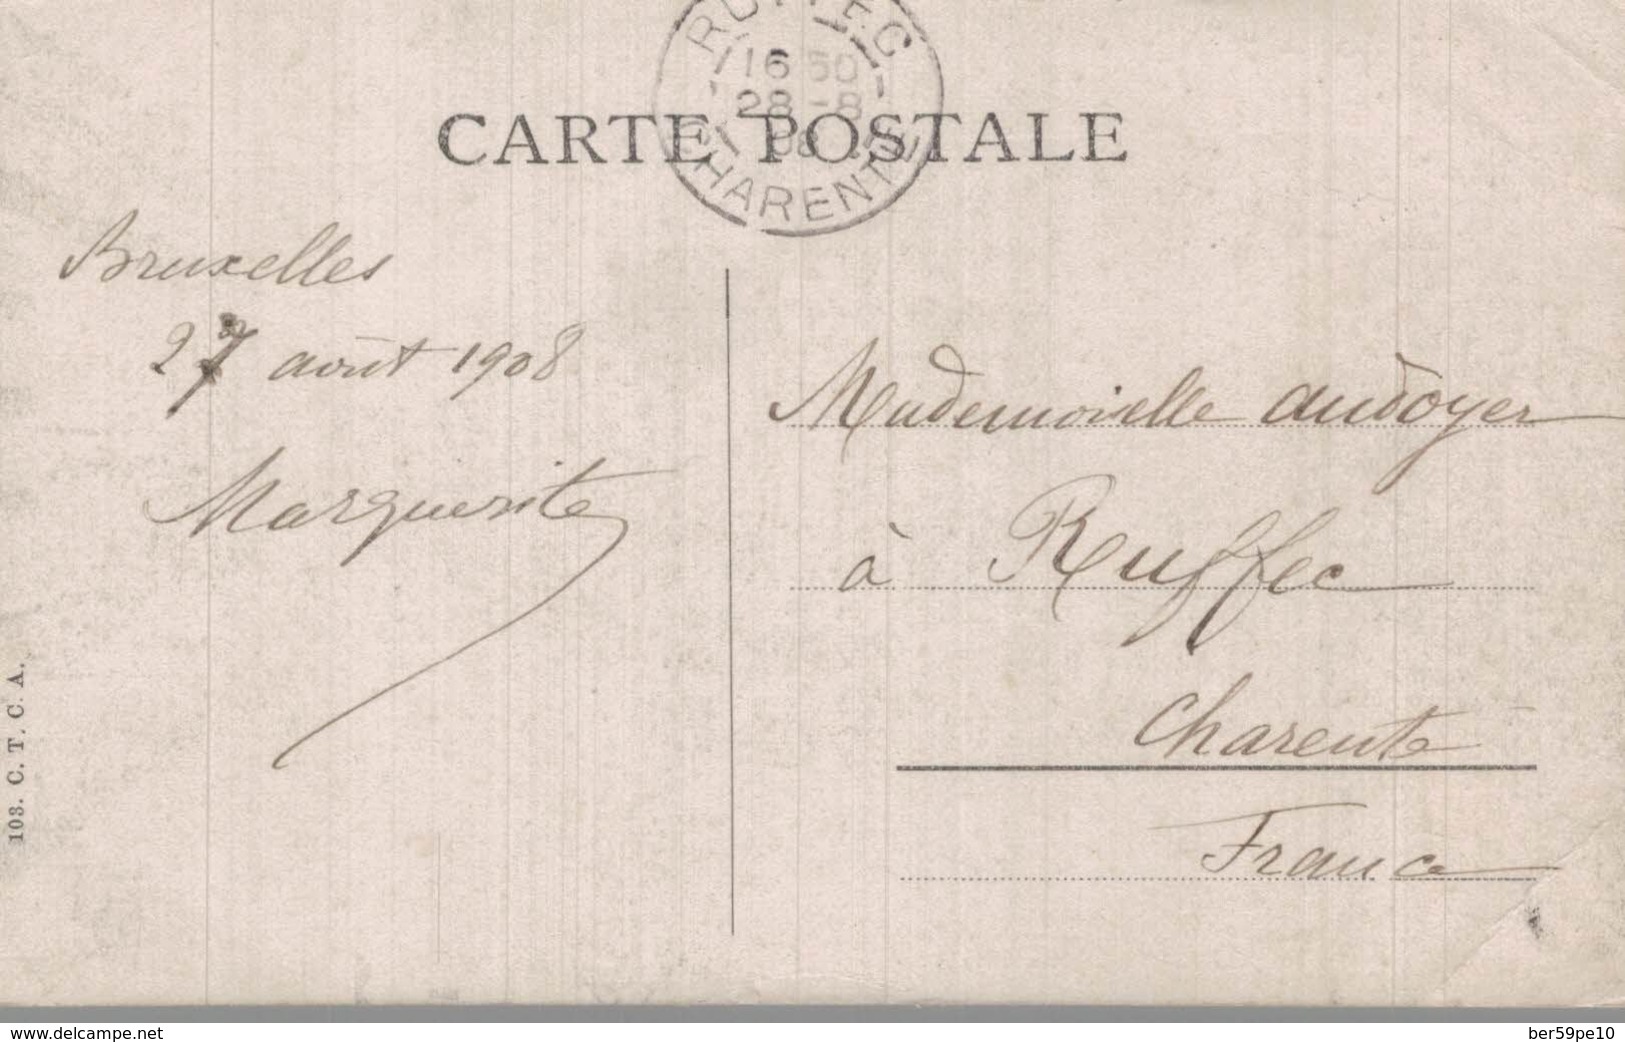 RUFFEC
16 50
28 - 8
08
CHARENTE
CARTE POSTALE
Bruxelles
27 août 1908
Marguerite
Mademoiselle Audoyer
à Ruffec
Charente
France
103. C. T. C. A.
www.delcampe.net
ber59pe10